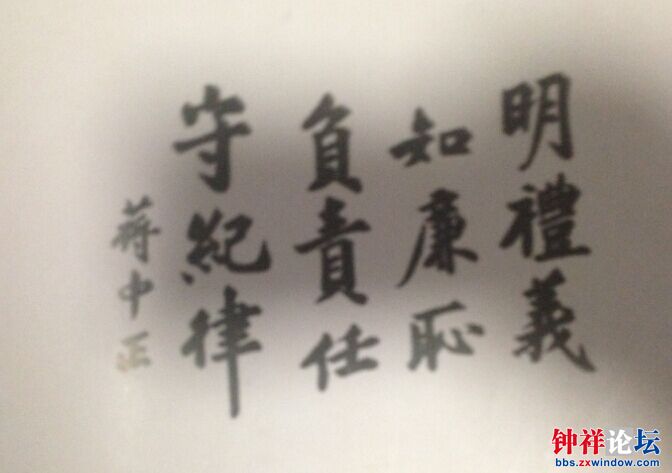 明禮義
知廉恥
負責任
守紀律
蔣中正
钟祥论坛
bbs.zxwindow.com